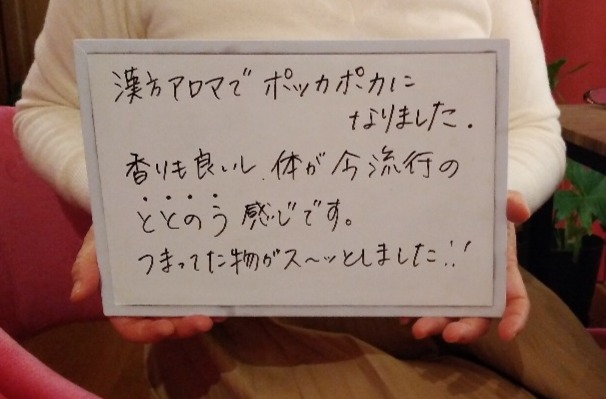 漢方アロマで ポッカポカに
なりました.
香りも良いし、体が今流行の
ととのう 感じです。
つまってた物がス〜ッとしました!!